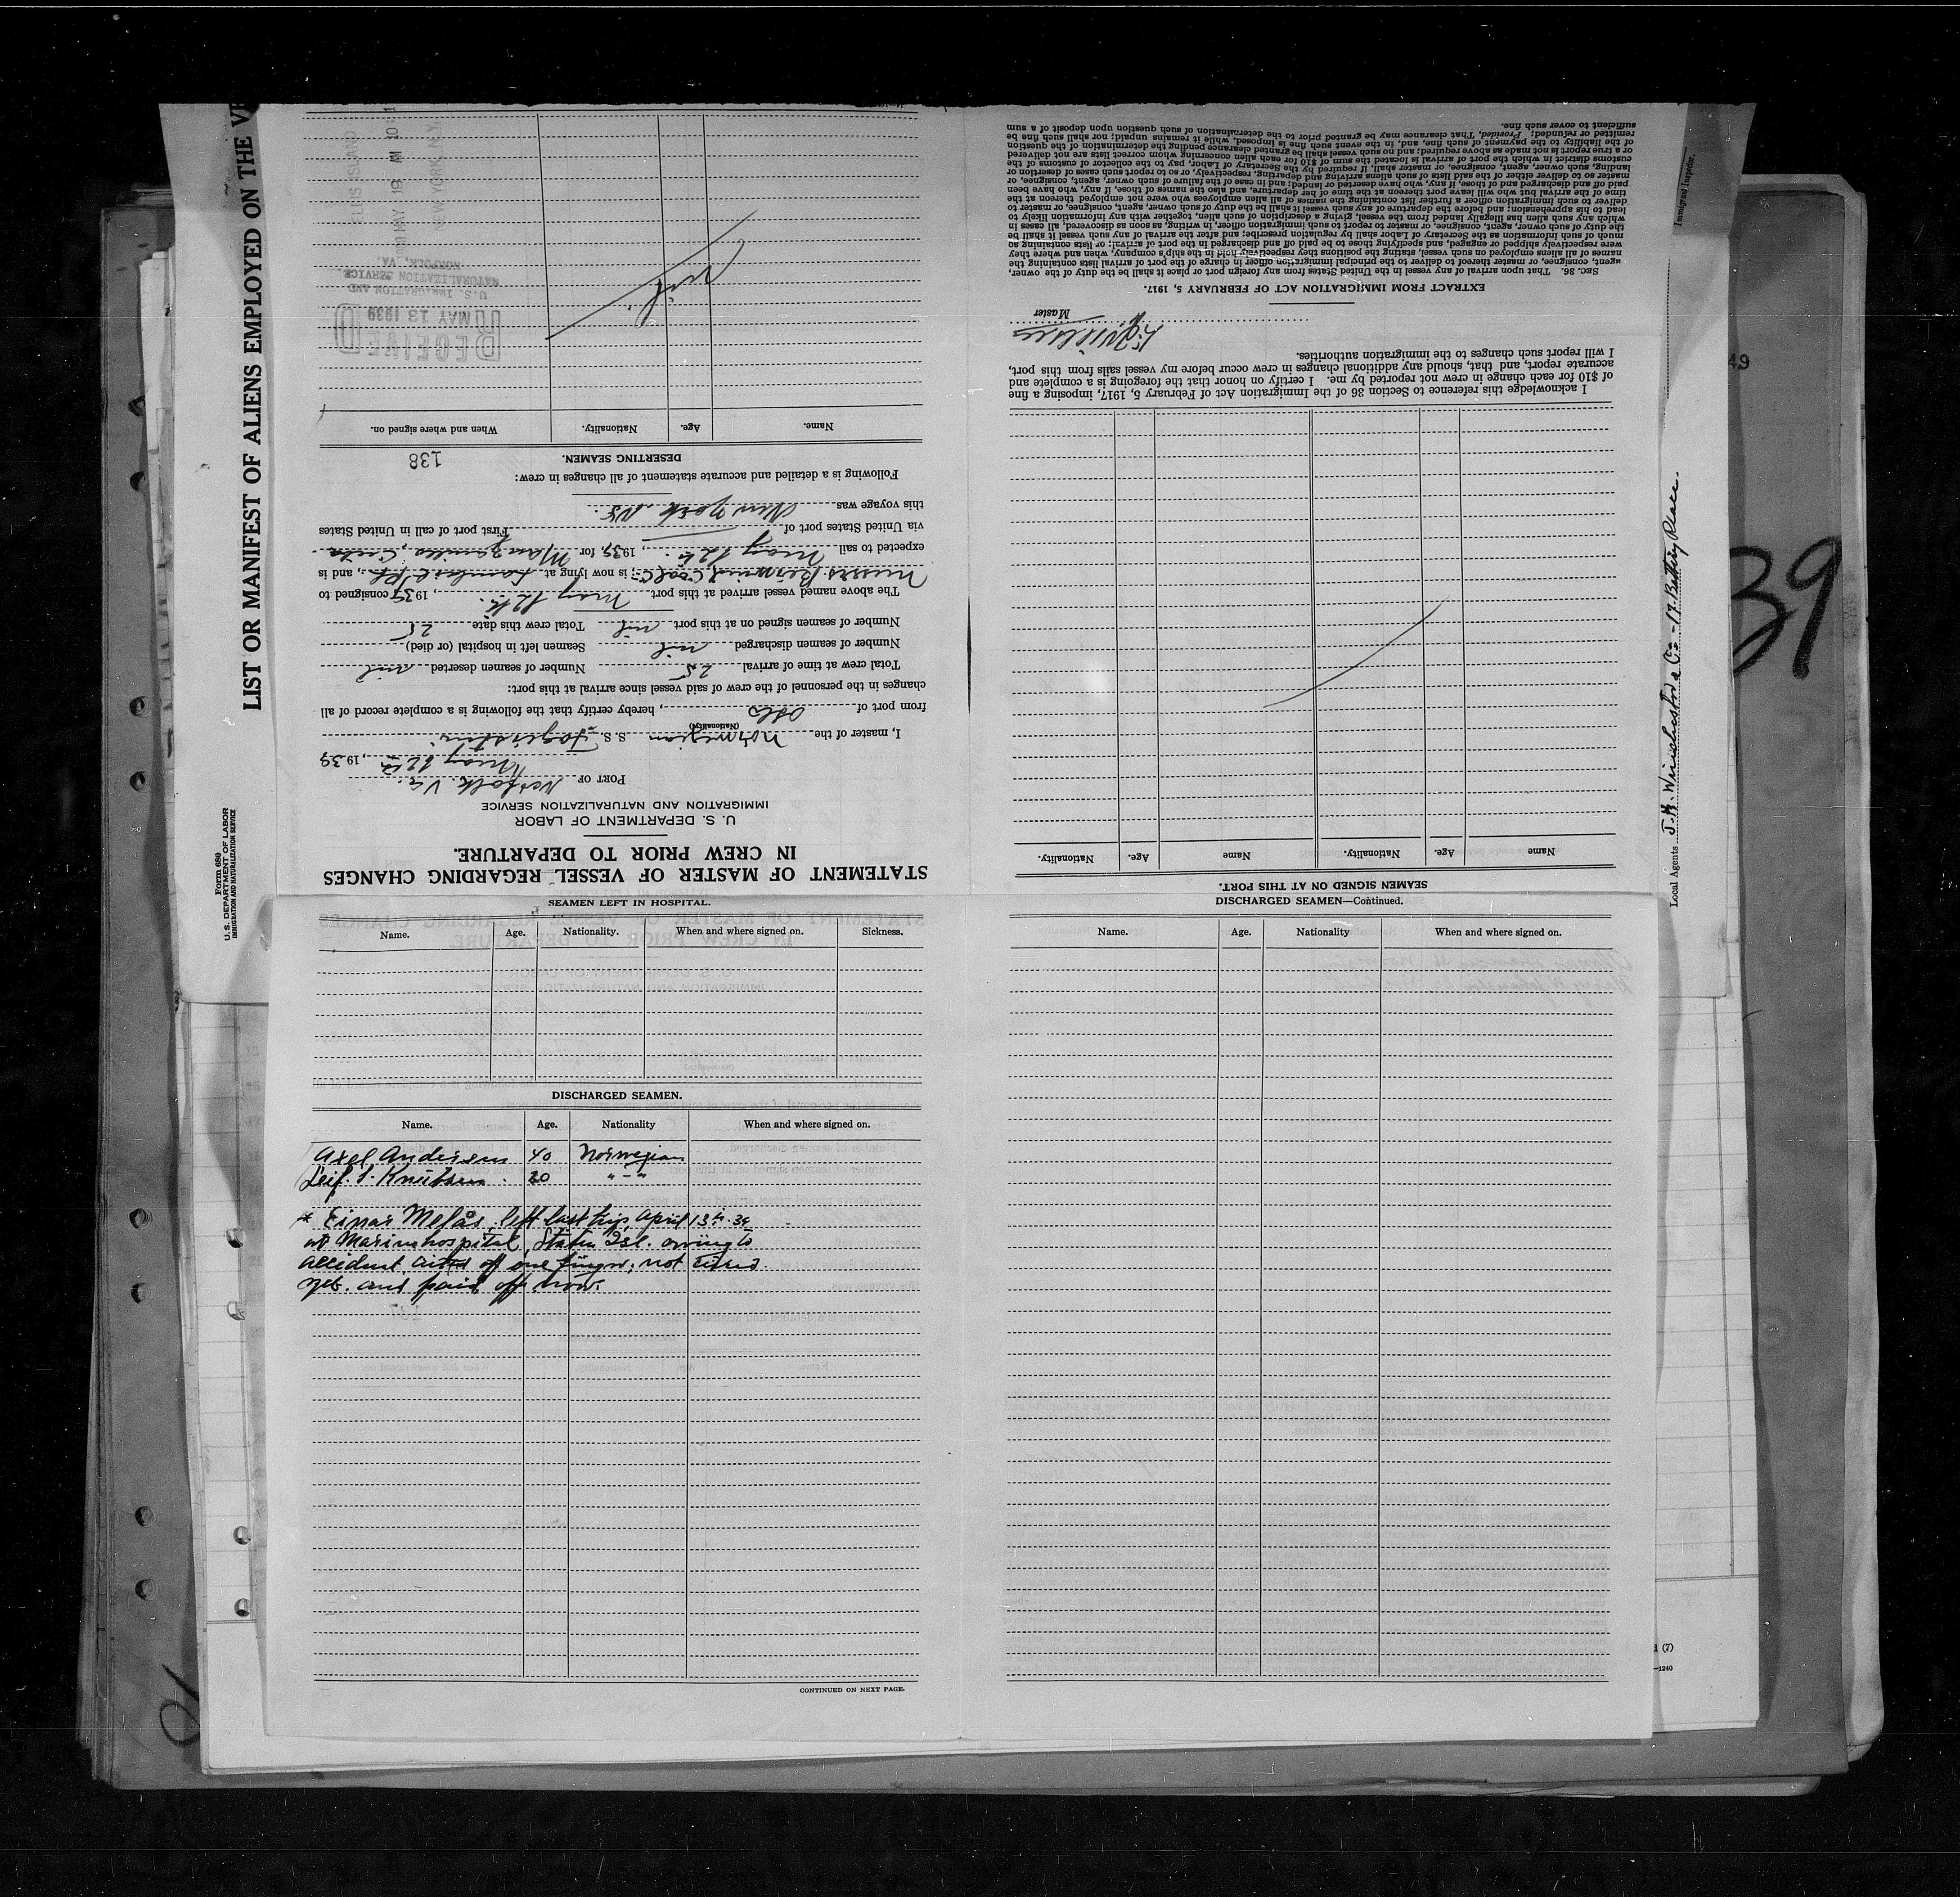 LIST OR MANIFEST OF ALIENS EMPLOYED ON THE VE
Form 680
U. S. DEPARTMENT OF LABOR
IMMIGRATION AND NATURALIZATION SERVICE
STATEMENT OF MASTER OF VESSEL REGARDING CHANGES
IN CREW PRIOR TO DEPARTURE.
U. S. DEPARTMENT OF LABOR
IMMIGRATION AND NATURALIZATION SERVICE
PORT OF Norfolk Va.
May 12th, 1939
I, master of the Norwegian S. S. Fagersten
(Nationality)
from port of Oslo, hereby certify that the following is a complete record of all
changes in the personnel of the crew of said vessel since arrival at this port:
Total crew at time of arrival 25 Number of seamen deserted nil
Number of seamen discharged nil Seamen left in hospital (or died)
Number of seamen signed on at this port nil Total crew this date 25
The above named vessel arrived at this port May 12th, 1939 consigned to
Messrs. Berwind Coal Co; is now lying at Lamberts Pt, and is
expected to sail May 12th, 1939, for Manzanillo, Cuba
via United States port of First port of call in United States
this voyage was New York NY.
Following is a detailed and accurate statement of all changes in crew:
138
DESERTING SEAMEN.
Name. Age. Nationality. When and where signed on.
Nil
RECEIVED
MAY 13 1939
U.S. IMMIGRATION AND
NATURALIZATION SERVICE
NORFOLK, VA.
ELLIS ISLAND
MAY 19 AM 10
NEW YORK, N.Y.
SEAMEN SIGNED ON AT THIS PORT.
Name Age. Nationality. Name Age. Nationality.
I acknowledge this reference to Section 36 of the Immigration Act of February 5, 1917, imposing a fine
of $10 for each change in crew not reported by me. I certify on honor that the foregoing is a complete and
accurate report, and that, should any additional changes in crew occur before my vessel sails from this port,
I will report such changes to the immigration authorities.
Master
EXTRACT FROM IMMIGRATION ACT OF FEBRUARY 5, 1917.
"SEC. 36. That upon arrival of any vessel in the United States from any foreign port or place it shall be the duty of the owner,
agent, consignee, or master thereof to deliver to the principal immigration officer in charge of the port of arrival lists containing the
names of all aliens employed on such vessel, stating the positions they respectively hold in the ship's company, when and where they
were respectively shipped or engaged, and specifying those to be paid off and discharged in the port of arrival; or lists containing so
much of such information as the Secretary of Labor shall by regulation prescribe; and after the arrival of any such vessel it shall be
the duty of such owner, agent, consignee, or master to report to such immigration officer, in writing, as soon as discovered, all cases in
which any such alien has illegally landed from the vessel, giving a description of such alien, together with any information likely to
lead to his apprehension; and before the departure of any such vessel it shall be the duty of such owner, agent, consignee, or master to
deliver to such immigration officer a further list containing the names of all alien employees who were not employed thereon at the
time of the arrival but who will leave port thereon at the time of her departure, and also the names of those, if any, who have been
paid off and discharged and of those, if any, who have deserted or landed; and in case of the failure of such owner, agent, consignee, or
master so to deliver either of the said lists of such aliens arriving and departing, respectively, or so to report such cases of desertion or
landing, such owner, agent, consignee, or master shall, if required by the Secretary of Labor, pay to the collector of customs of the
customs district in which the port of arrival is located the sum of $10 for each alien concerning whom correct lists are not delivered
or a true report is not made as above required; and no such vessel shall be granted clearance pending the determination of the question
of the liability to the payment of such fine, and, in the event such fine is imposed, while it remains unpaid; nor shall such fine be
remitted or refunded; Provided, That clearance may be granted prior to the determination of such question upon deposit of a sum
sufficient to cover such fine.
Immigrant Inspector.
Local Agents J. H. Winchester & Co - 17 Battery Place.
49
39
SEAMEN LEFT IN HOSPITAL.
Name. Age. Nationality. When and where signed on. Sickness.
DISCHARGED SEAMEN.
Name. Age. Nationality When and where signed on.
Axel Andersen 40 Norwegian
Leif. S. Knutsen. 20 " - "
* Einar Melås, left last trip, April 13th 39
at Marinehospital, Staten Isl. owing to
accident, cutted off one finger, not cured
yet. and paid off now.
CONTINUED ON NEXT PAGE.
DISCHARGED SEAMEN—Continued.
Name. Age. Nationality When and where signed on.
(7)
—1240